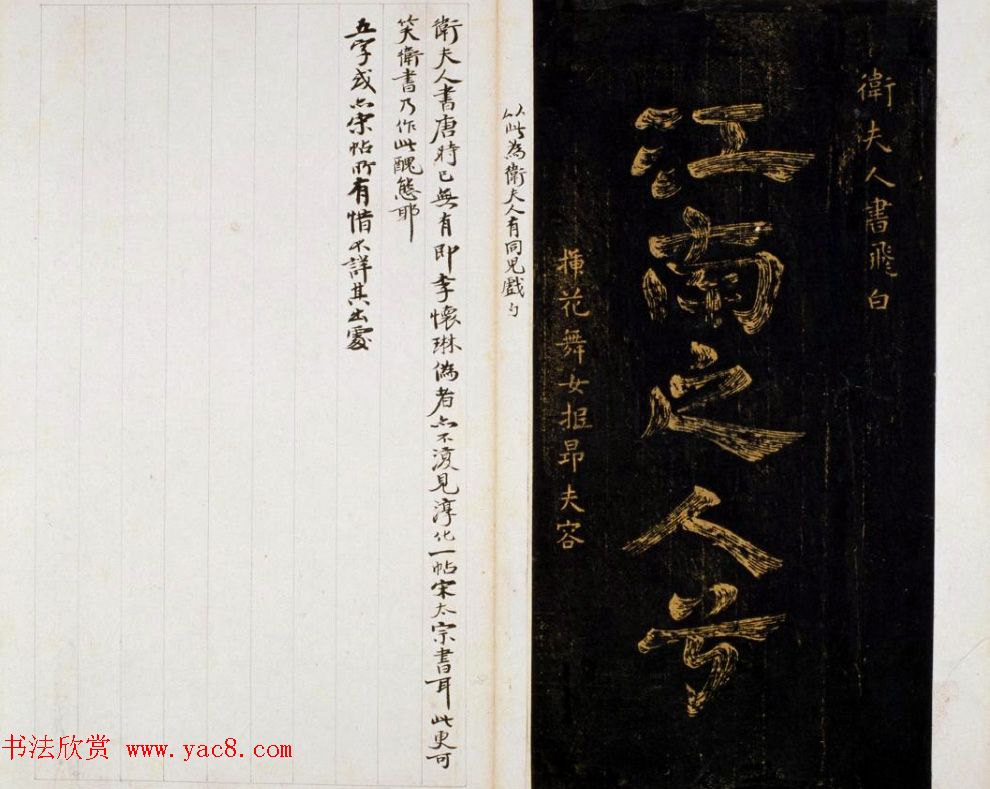 衛夫人書飛白
江南之人兮
揮花舞女抵昂夫容
以此為衛夫人有同兒戲
衛夫人書唐時已無有即李懷琳偽者亦不復見淳化一帖宋太宗書耳此更可
笑衛書乃作此醜態耶
五字或亦宋帖所有惜不詳其出處
书法欣赏 www.yac8.com